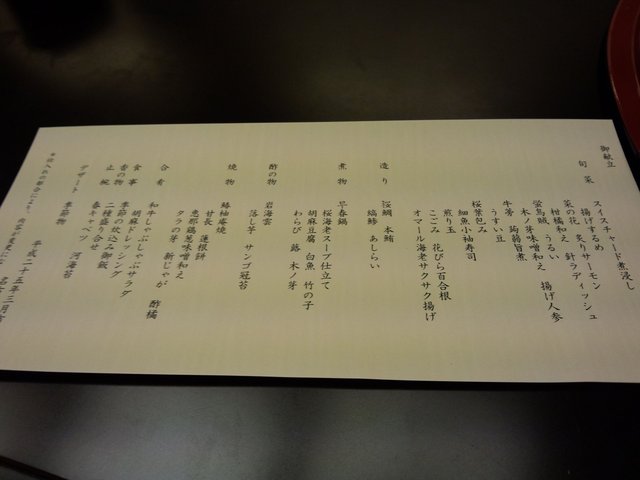 御献立
旬菜
スイスチャード煮浸し
揚げするめ 炙りサーモン
菜の花 針ラディッシュ
柑橘和え
蛍烏賊、うるい 揚げ人参
木ノ芽味噌和え
牛蒡 蒟蒻旨煮
うすい豆
桜葉包み
細魚小袖寿司
煎り玉
こごみ 花びら百合根
オマール海老サクサク揚げ
造り
桜鯛 本鮪
縞鯵 あしらい
煮物
早春鍋
桜海老スープ仕立て
胡麻豆腐 白魚 竹の子
わらび 蕗 木ノ芽
酢の物
岩海雲
落し芋 サンゴ冠苔
焼物
鰆柚庵焼
甘長 蓮根餅
恵那鶏葱味噌和え
タラの芽 新じゃが 酢橘
合肴
和牛しゃぶしゃぶサラダ
胡麻ドレッシング
食事
季節の炊込み御飯
香の物
二種盛り合せ
止椀
春キャベツ 河海苔
デザート
季節物
※仕入れの都合により、内容が変更に
平成二十五年三月吉